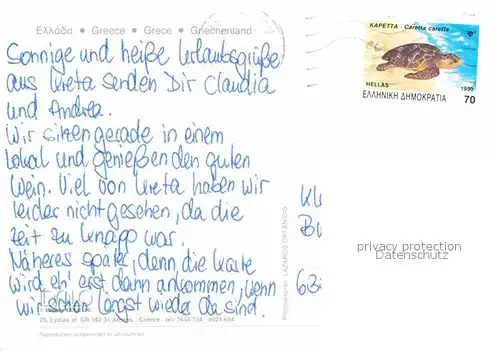 Ελλάδα • Greece • Grece • Griechenland
Sonnige und heiße Urlaubsgrüße
aus Kreta senden Dir Claudia
und Andrea.
Wir sitzen gerade in einem
Lokal und genießen den guten
Wein. Viel von Kreta haben wir
leider nicht gesehen, da die
Zeit zu knapp war.
Näheres später, denn die Karte
wird eh' erst dann ankommen, wenn
wir schon längst wieder da sind.
ΚΑΡΕΤΤΑ - Caretta caretta
HELLAS 1990
ΕΛΛΗΝΙΚΗ ΔΗΜΟΚΡΑΤΙΑ 70
privacy protection
Datenschutz
Photographer: LAZAROS
25, Lydias st GR 162 31 Athens - Greece - tel: 7644 734
Reproduction not permitted by all countries